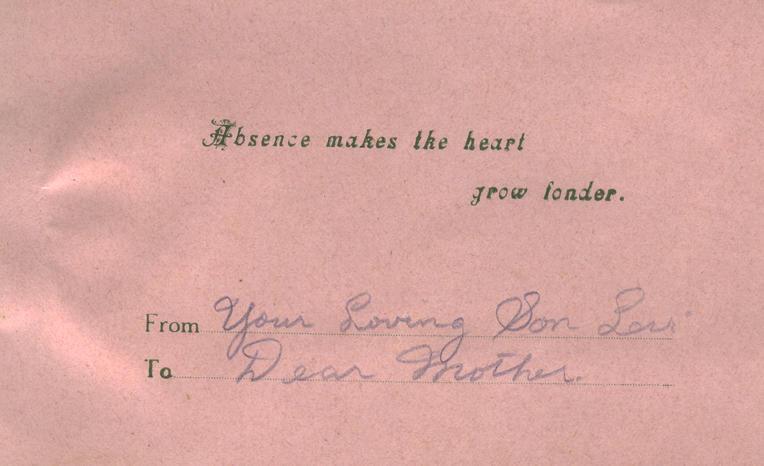 Absence makes the heart
grow fonder.
From Your Loving Son
To Dear Mother.